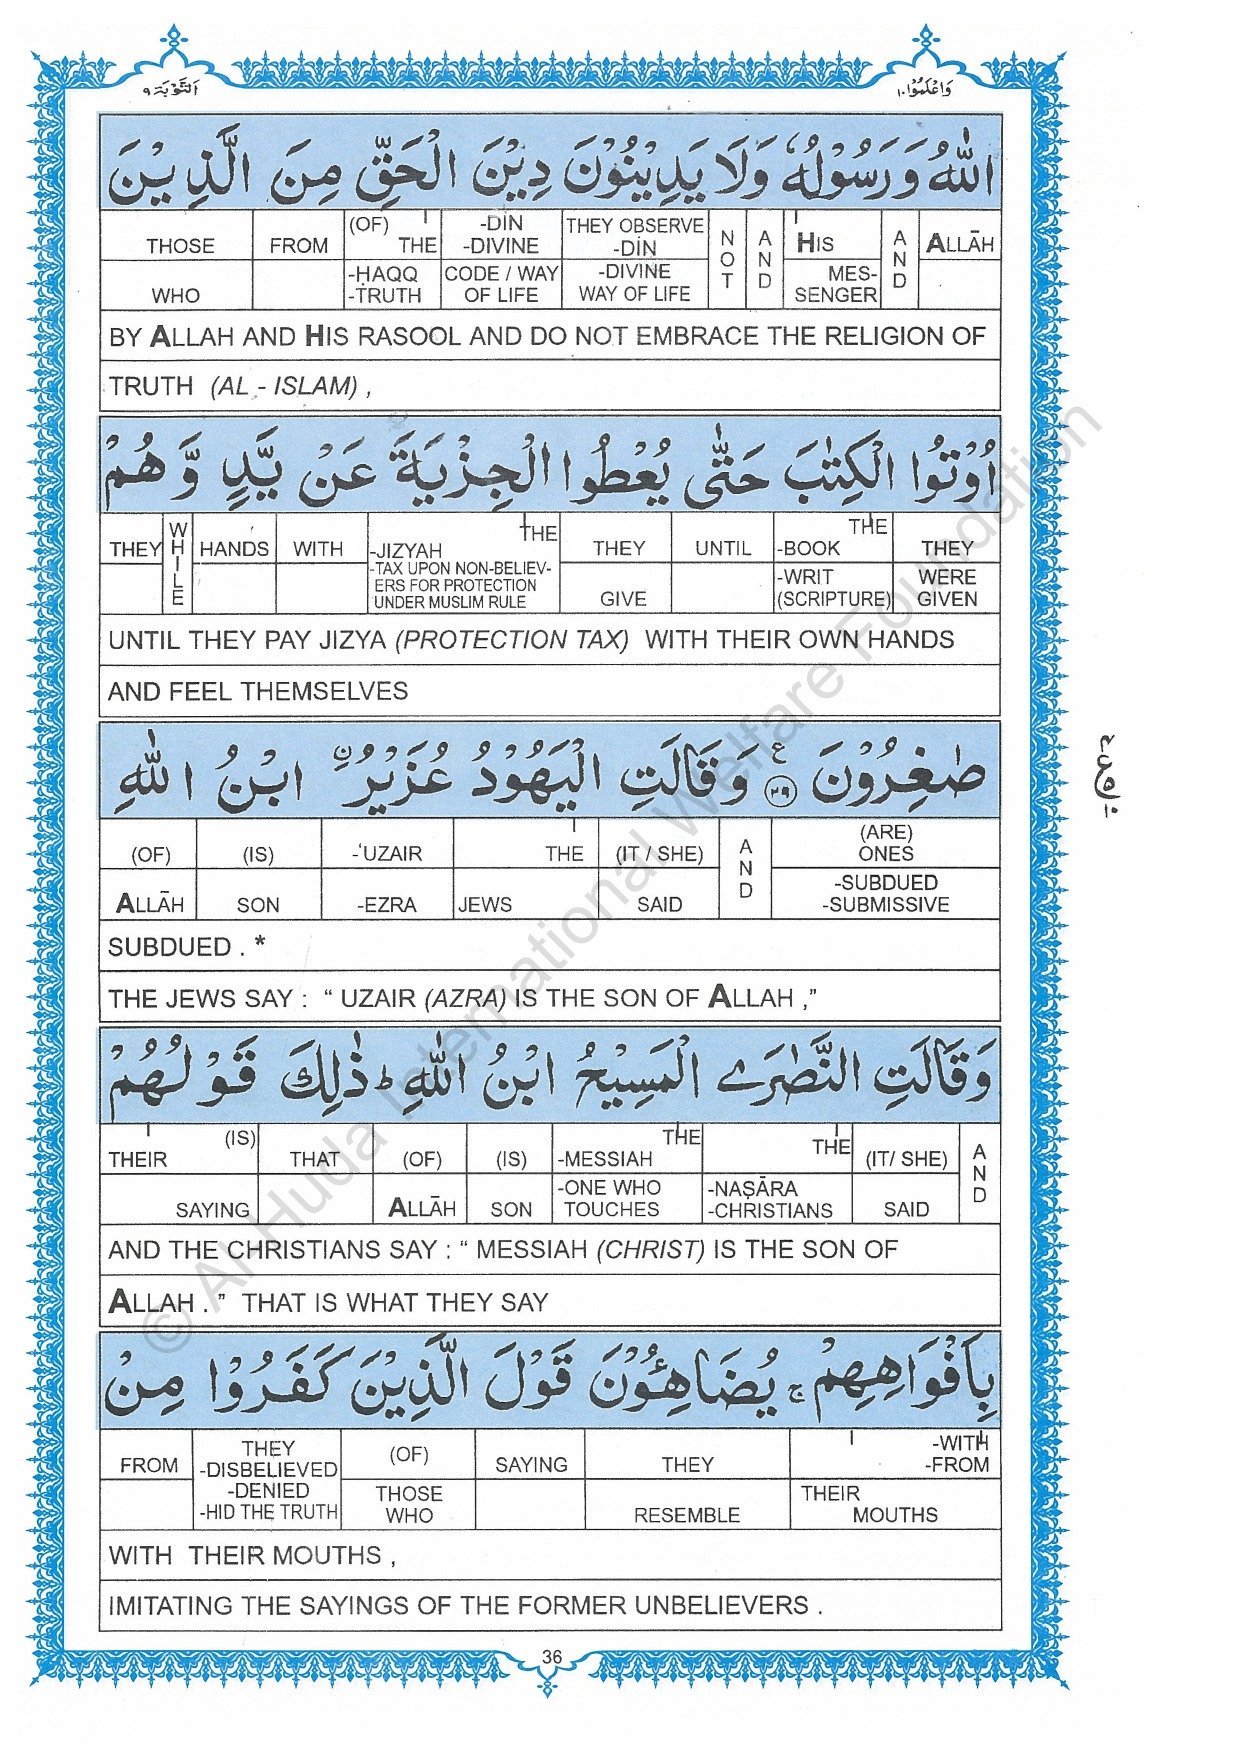 وَاعْلَمُوْا ١٠
اَلتَّوْبَة ٩
اللّٰهُ وَرَسُوْلُهٗ وَلَا يَدِيْنُوْنَ دِيْنَ الْحَقِّ مِنَ الَّذِيْنَ
THOSE WHO | FROM | (OF) THE -ḤAQQ -TRUTH | -DĪN -DIVINE CODE / WAY OF LIFE | THEY OBSERVE -DĪN -DIVINE WAY OF LIFE | NOT | AND | HIS MES- SENGER | AND | ALLĀH
BY ALLAH AND HIS RASOOL AND DO NOT EMBRACE THE RELIGION OF
TRUTH (AL - ISLAM) ,
اُوْتُوا الْكِتٰبَ حَتّٰى يُعْطُوا الْجِزْيَةَ عَنْ يَّدٍ وَّهُمْ
THEY | WHILE | HANDS | WITH | THE -JIZYAH -TAX UPON NON-BELIEV- ERS FOR PROTECTION UNDER MUSLIM RULE | THEY GIVE | UNTIL | THE -BOOK -WRIT (SCRIPTURE) | THEY WERE GIVEN
UNTIL THEY PAY JIZYA (PROTECTION TAX) WITH THEIR OWN HANDS
AND FEEL THEMSELVES
صٰغِرُوْنَ ع ٢٩ وَقَالَتِ الْيَهُوْدُ عُزَيْرُ ۨ ابْنُ اللّٰهِ
(OF) ALLĀH | (IS) SON | -‘UZAIR -EZRA | THE JEWS | (IT / SHE) SAID | AND | (ARE) ONES -SUBDUED -SUBMISSIVE
SUBDUED . *
THE JEWS SAY : “ UZAIR (AZRA) IS THE SON OF ALLAH ,”
وَقَالَتِ النَّصٰرَے الْمَسِيْحُ ابْنُ اللّٰهِ ط ذٰلِكَ قَوْلُهُمْ
THEIR (IS) SAYING | THAT | (OF) ALLĀH | (IS) SON | THE -MESSIAH -ONE WHO TOUCHES | THE -NAṢĀRA -CHRISTIANS | (IT/ SHE) SAID | AND
AND THE CHRISTIANS SAY : “ MESSIAH (CHRIST) IS THE SON OF
ALLAH . ” THAT IS WHAT THEY SAY
بِاَفْوَاهِهِمْ ج يُضَاهِئُوْنَ قَوْلَ الَّذِيْنَ كَفَرُوْا مِنْ
FROM | THEY -DISBELIEVED -DENIED -HID THE TRUTH | (OF) THOSE WHO | SAYING | THEY RESEMBLE | -WITH -FROM THEIR MOUTHS
WITH THEIR MOUTHS ,
IMITATING THE SAYINGS OF THE FORMER UNBELIEVERS .
36
© Al-Huda International Welfare Foundation